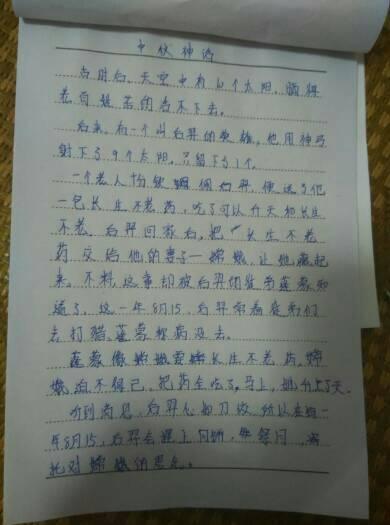 中秋神话
古时后，天空中有10个太阳，晒得
老百姓苦的活不下去。
后来，有一个叫后羿的英雄，他用神弓
射下了9个太阳，只留下了1个。
一个老人
一包长生不老药，吃了可以升天和长生
不老。后羿回家后，把长生不老
药交给他的妻子—嫦娥，让她藏起
来。不料，这事却被后羿的徒弟蓬蒙知
道了。这一年8月15，后羿带着徒弟们
去打猎，蓬蒙 病没去。
蓬蒙 长生不老药，嫦
娥迫不得已，把药全吃了。马上，她升上了天。
听到消息，后羿心如刀绞，所以在每一
年8月15，后羿会摆上月饼，
托对嫦娥的思念。